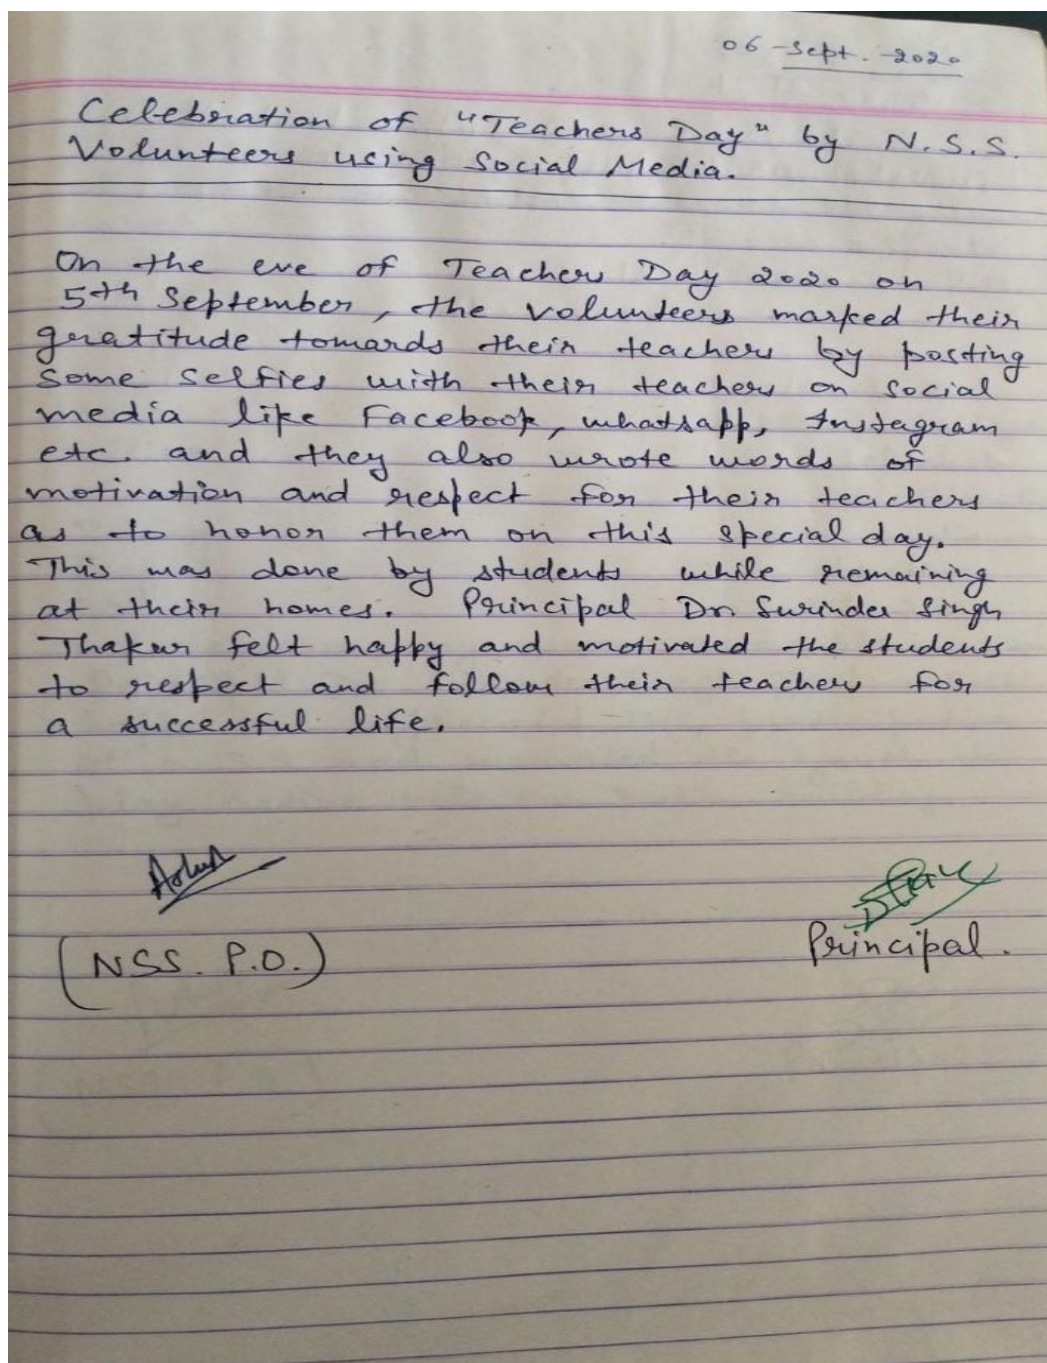 06-Sept.-2020
Celebration of "Teachers Day" by N.S.S.
Volunteers using Social Media.
On the eve of Teachers Day 2020 on
5th September, the volunteers marked their
gratitude towards their teachers by posting
some selfies with their teachers on social
media like Facebook, whatsapp, Instagram
etc. and they also wrote words of
motivation and respect for their teachers
as to honor them on this special day.
This was done by students while remaining
at their homes. Principal Dr. Surinder Singh
Thakur felt happy and motivated the students
to respect and follow their teachers for
a successful life.
(NSS. P.O.)
Principal.